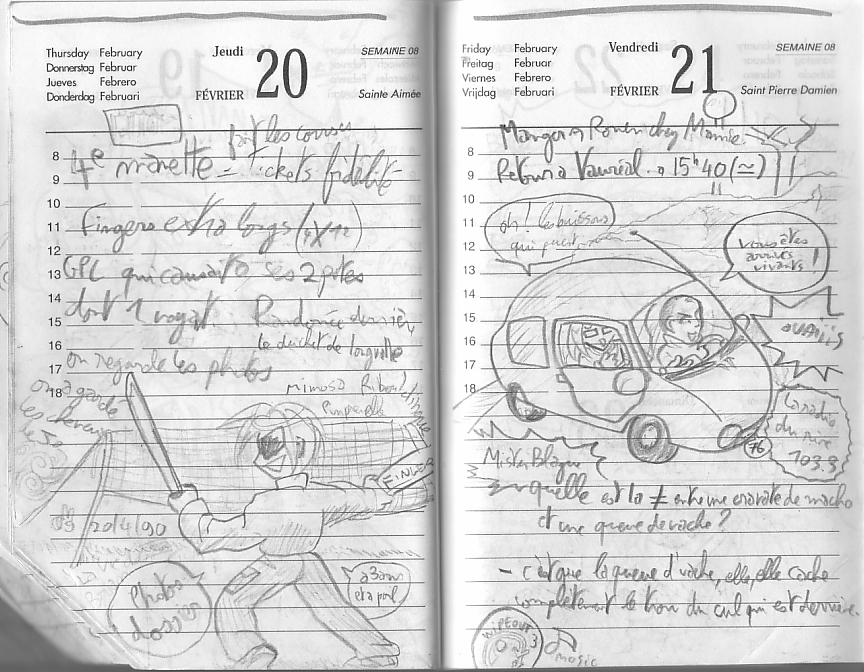 Thursday February
Donnerstag Februar
Jueves Febrero
Donderdag Februari
Jeudi
20
FÉVRIER
SEMAINE 08
Sainte Aimée
fait les courses
8 4e manette = tickets fidélité
9
10
11 Fingers extra longs
12
13 GPL qui ses 2 potes
14 dont 1
15
16
17 on regarde les photos
18
on a gardé
les cheveux
Mimosa
20/4/90
FINGER
Photos
dossier
Friday February
Freitag Februar
Viernes Febrero
Vrijdag Februari
Vendredi
21
FÉVRIER
SEMAINE 08
Saint Pierre Damien
Manger à Rouen chez Mamie
8
9 Retour à Vauréal à 15h40 (≃)
10
11 oh! les buissons
12 qui puent
13
14
15
16
17
18
vous êtes
arrivés
vivants!
OUAIIIS
La radio
du rire
103.9
76
Mister Blague
quelle est la ≠ entre une cravate de macho
et une queue de vache?
- c'est que la queue d'vache, elle, elle cache
complètement le trou du cul qui est derrière.
WIPEOUT 3
music